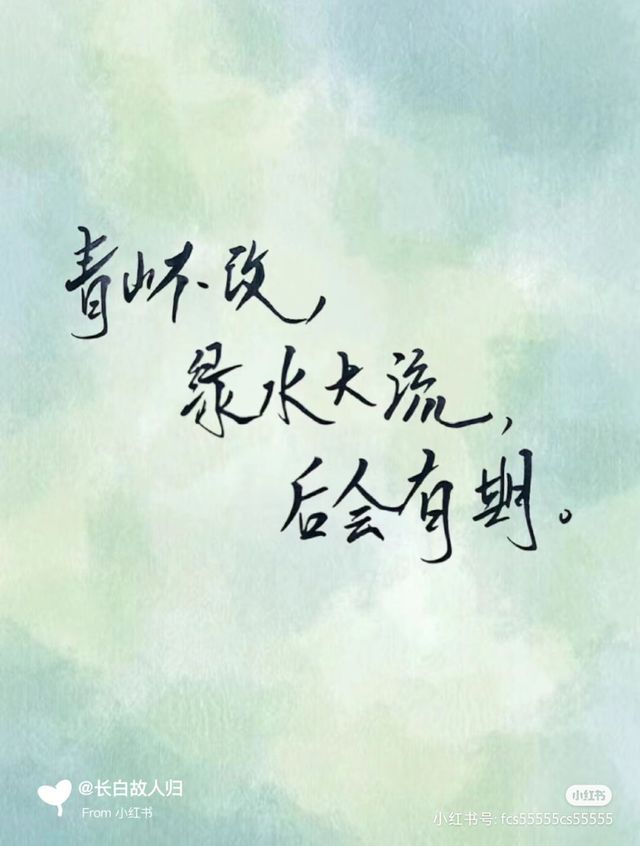 青山不改，
绿水大流，
后会有期。
@长白故人归
From 小红书
小红书
小红书号: fcs55555cs55555